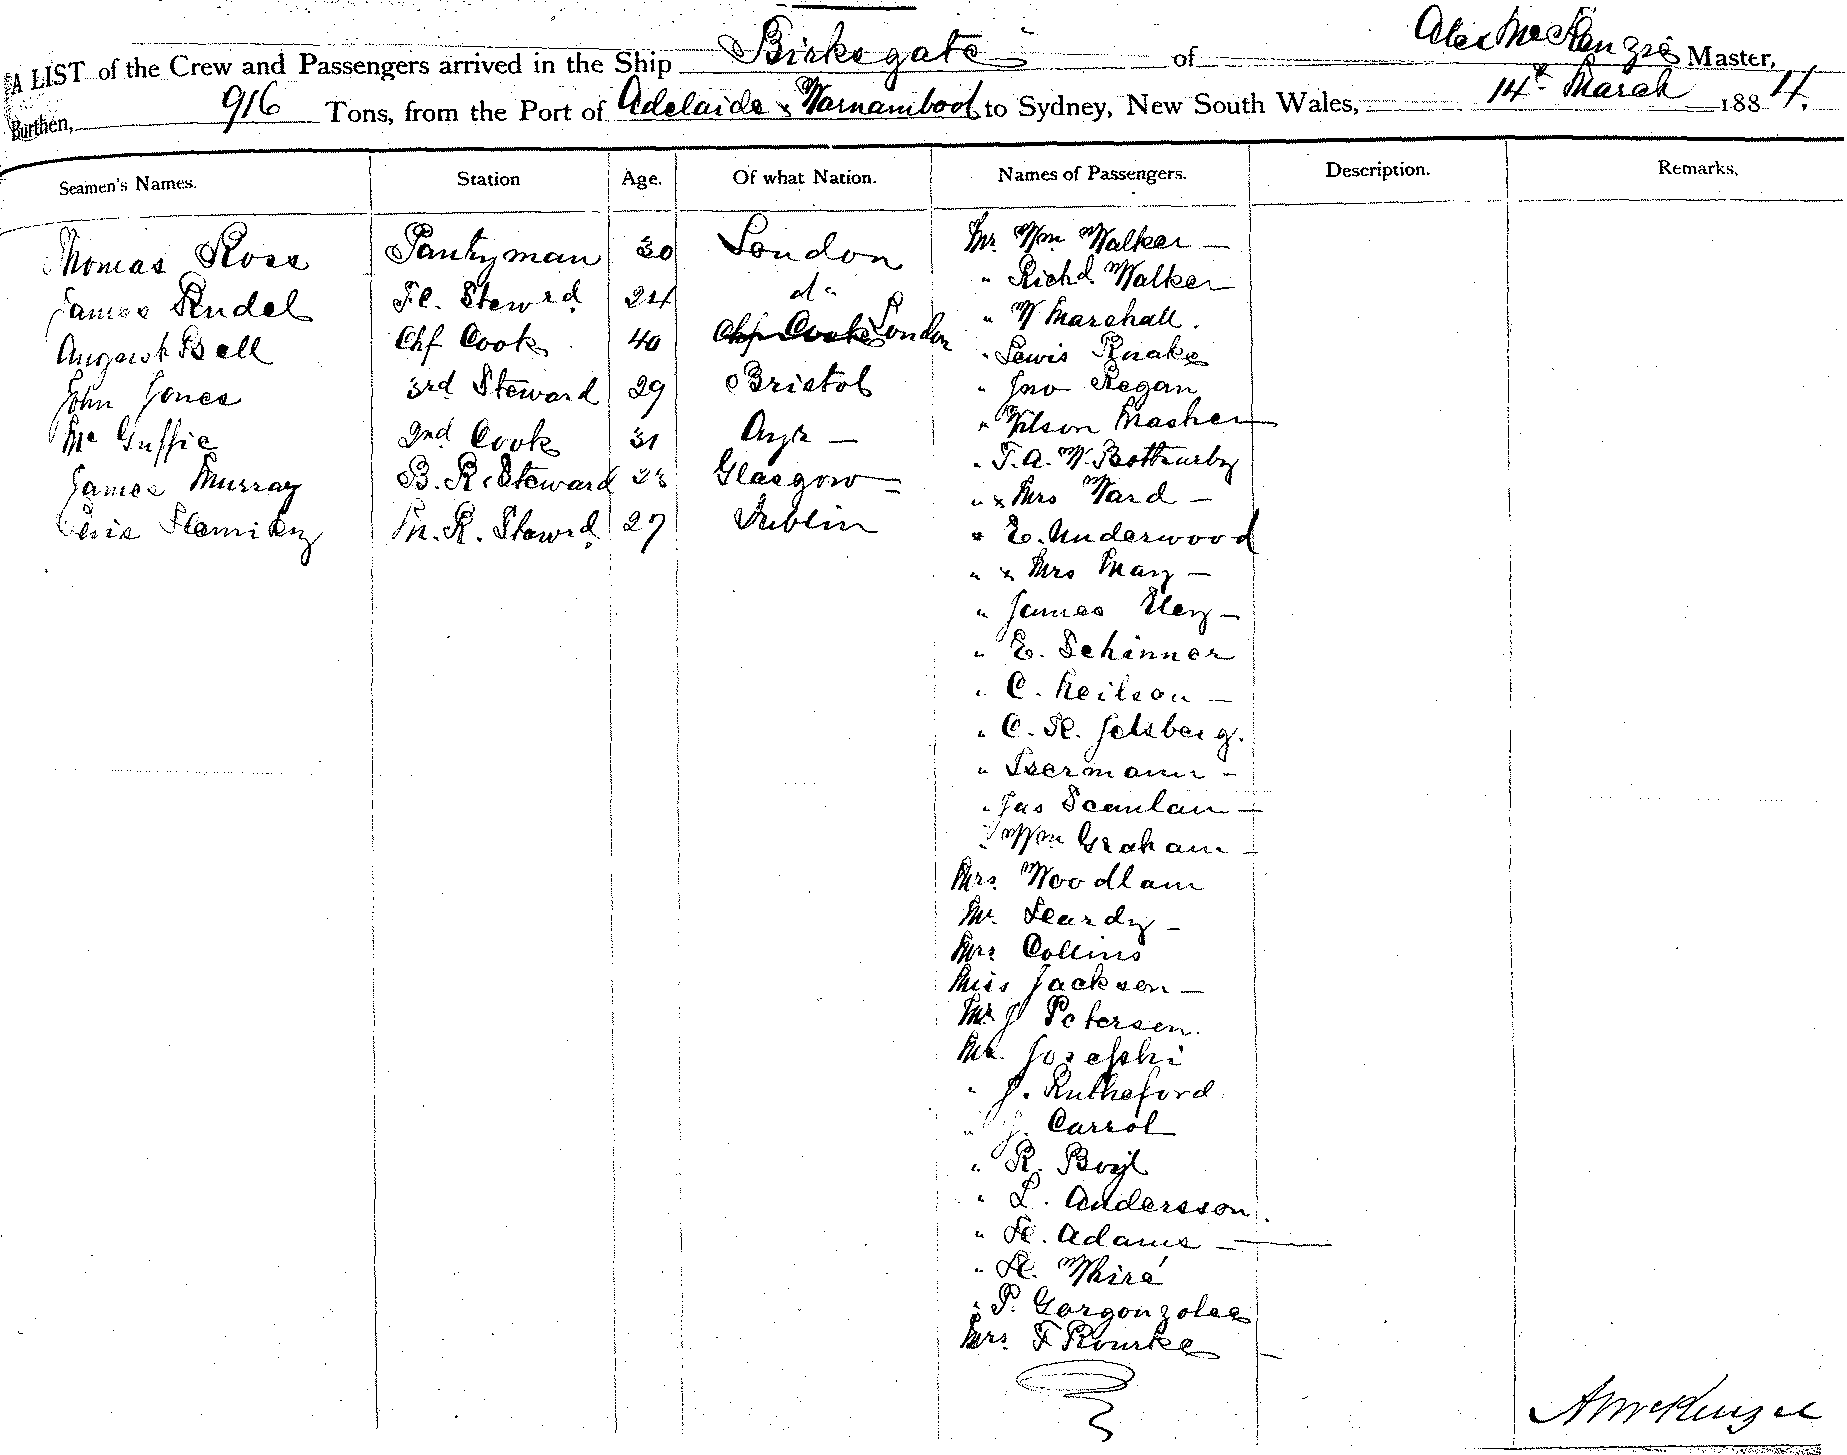 A LIST of the Crew and Passengers arrived in the Ship Birksgate of Alex McKenzie Master,
Burthen, 916 Tons, from the Port of Adelaide & Warnambool to Sydney, New South Wales, 14th March 1884.
Seamen's Names. Station Age. Of what Nation. Names of Passengers. Description. Remarks.
Thomas Ross Pantryman 30 London Mr Wm Walker —
James Rudel Fc. Steward 24 do " Richd. Walker
August Bell Chf Cook 40 Chf Cook London " W Marshall.
John Jones 3rd Steward 29 Bristol " Lewis
Mc Guffie 2nd Cook 31 Ayr — " Jno Regan
James Murray B. R. Steward Glasgow " Wilson Masher
M. R. Stewrd 27 Dublin " T. A. W.
" x Mrs Ward —
" E. Underwood
" x Mrs May —
" James —
" E. Schinner
" C. Neilson —
" C. H.
"
" Jas Scanlan —
" Wm Graham —
Mrs. Woodlam
Mr —
Mrs Collins
Miss Jackson —
Mr J Petersen.
Mr. Josephi
" J. Rutheford
" J. Carrol
" R. Boyl
" L. Andersson.
" H. Adams —
" H.
" P. Gorgonzolee
Mrs. F Rourke
A McKenzie